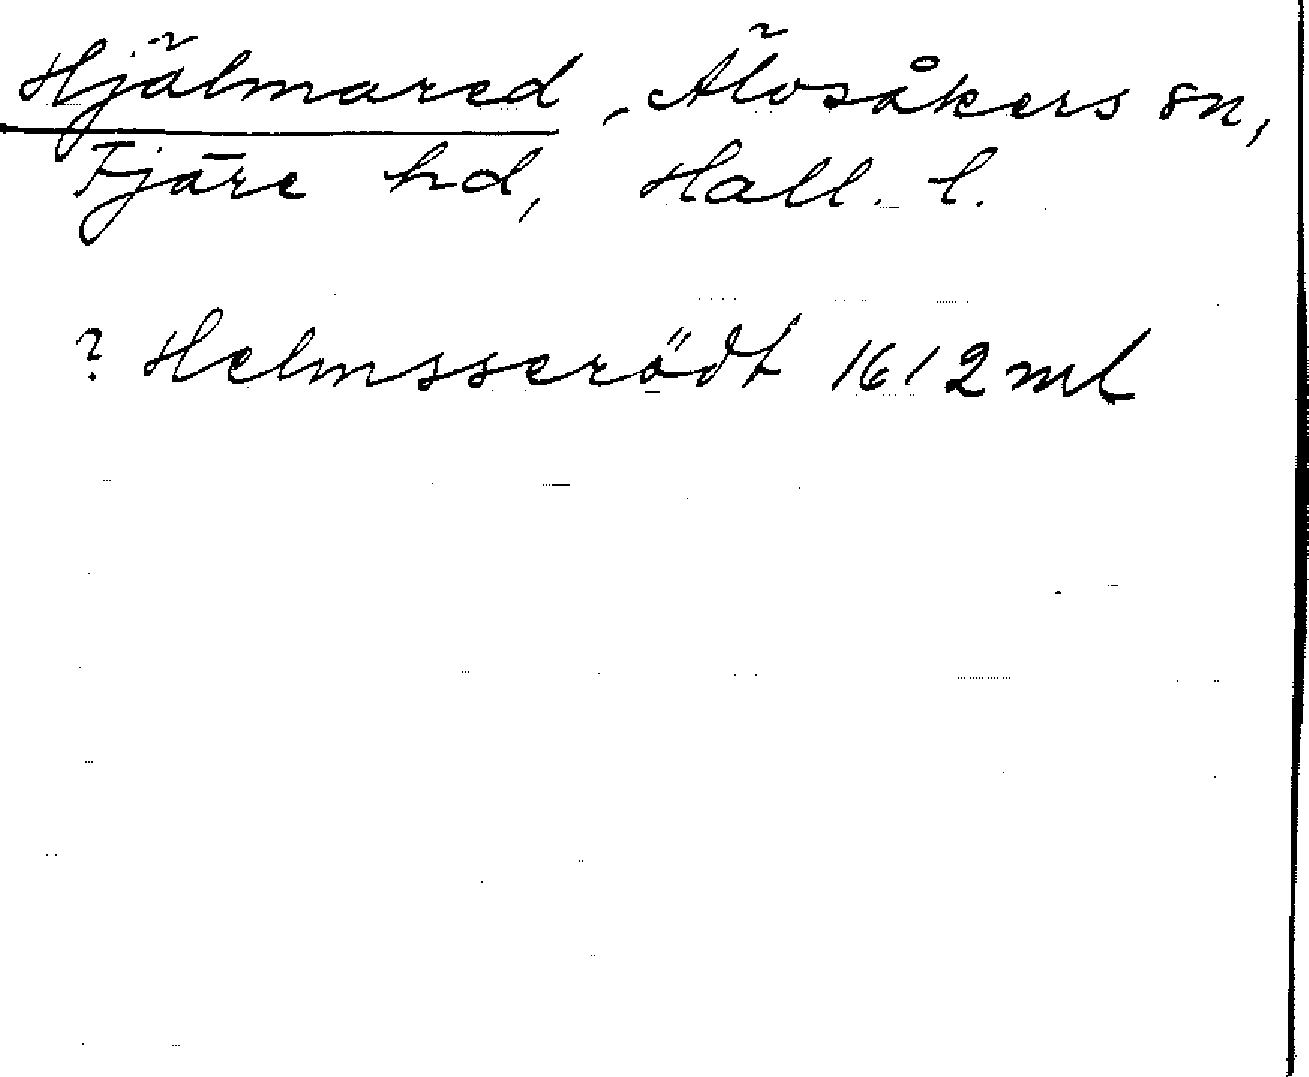 Hjälmared, Älvsåkers sn,
Fjäre hd, Hall. l.
? Helmsserödt 1612 ml